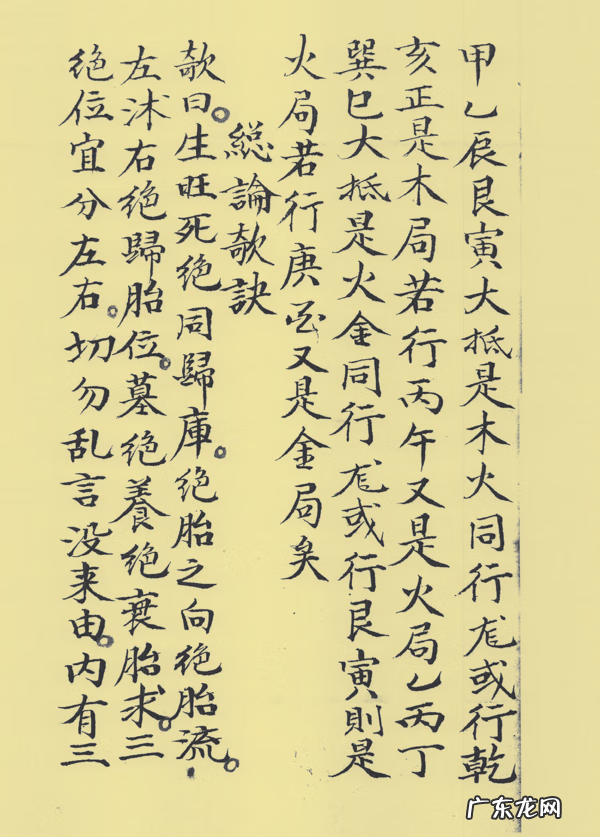 甲乙辰艮寅大抵是木火同行龙或行乾
亥正是木局若行丙午又是火局乙丙丁
巽巳大抵是火金同行龙或行艮寅則是
火局若行庚酉又是金局矣
総論欹訣
欹曰。生旺死绝同歸庫。绝胎之向绝胎流。
左沭右绝歸胎位。墓绝養绝衰胎求。三
绝位宜分左右。切勿乱言没来由。内有三
广东龙网